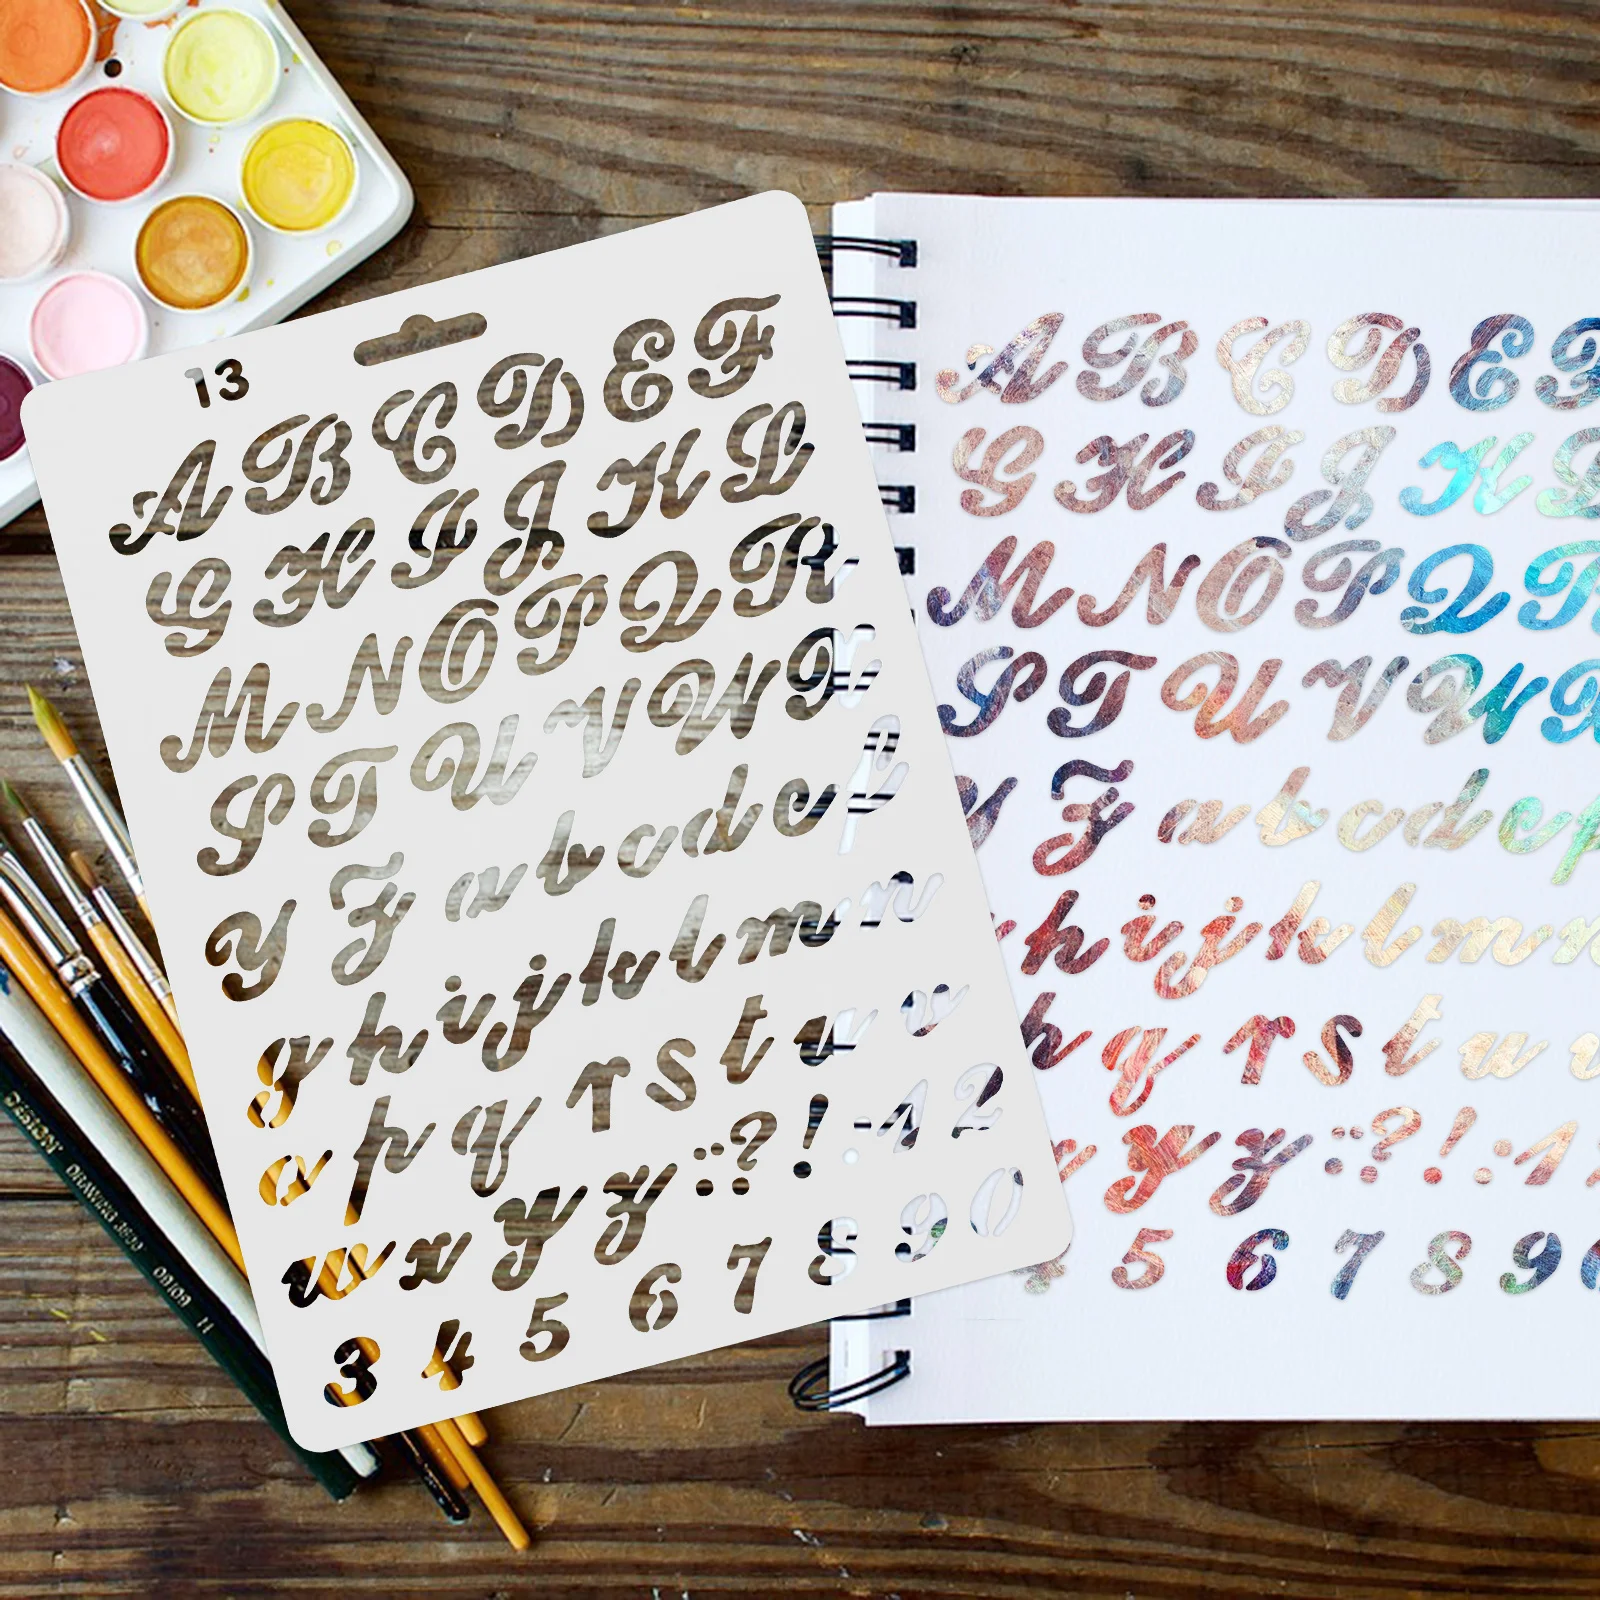 13
A B C D E F
G H I J K L
M N O P Q R
S T U V W X
Y Z a b c d e f
g h i j k l m n
o p q r s t u v
w x y z : ? ! : 1 2
3 4 5 6 7 8 9 0
A B C D E F
G H I J K L
M N O P Q R
S T U V W X
Y Z a b c d e f
h i j k l m n
q r s t u v
y z : ? ! : 1
5 6 7 8 9
DESIGN DRAWING 3800